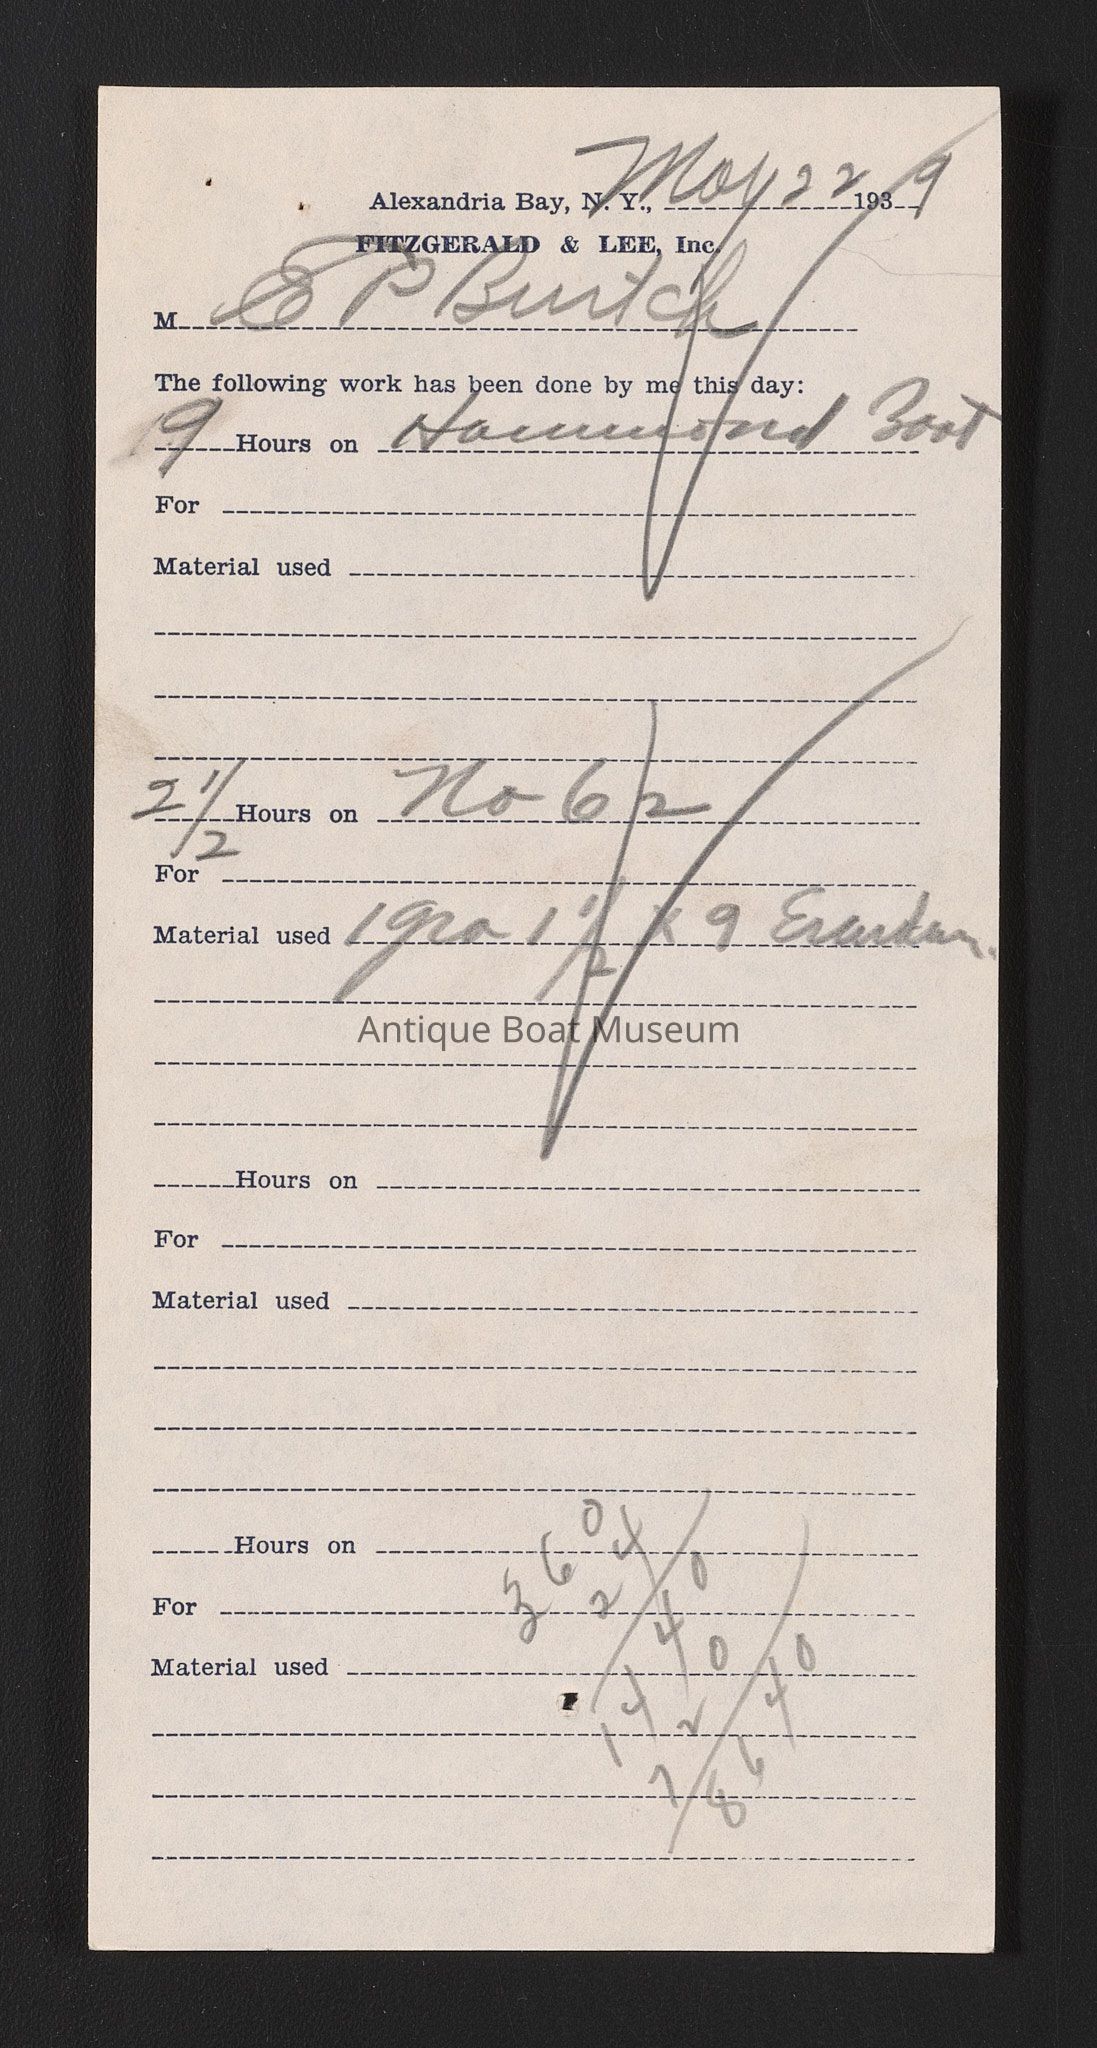 Alexandria Bay, N. Y., May 22 1939
FITZGERALD & LEE, Inc.
M E P Burtch
The following work has been done by me this day:
19 Hours on Hammond Boat
For
Material used
2 1/2 Hours on No 62
For
Material used 1 gro 1 1/2 x 9
Antique Boat Museum
Hours on
For
Material used
Hours on
For
Material used
360
24
1440
720
8640